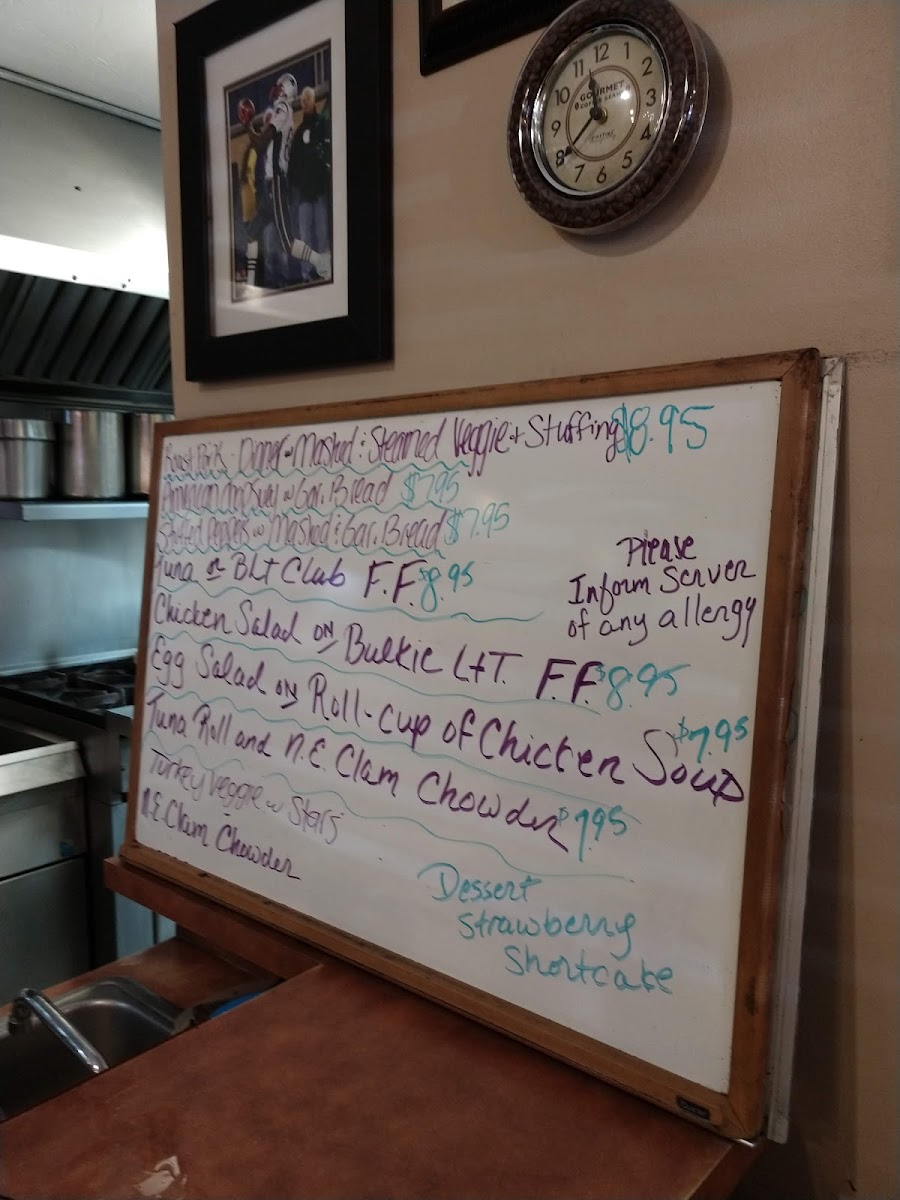 12
1
2
3
4
5
6
7
8
9
10
11
GOURMET
COFFEE BEANS
Roast Pork Dinner w Mashed & Steamed Veggie + Stuffing $8.95
American Chop Suey w Gar. Bread $7.95
Stuffed Peppers w Mashed & Gar. Bread $7.95
Tuna or BLT Club F.F. $8.95
Chicken Salad on Bulkie L+T. F.F. $8.95
Egg Salad on Roll-Cup of Chicken Soup $7.95
Tuna Roll and N.E. Clam Chowder $7.95
Turkey Veggie w Stars
N.E. Clam Chowder
Please
Inform Server
of any allergy
Dessert
Strawberry
Shortcake